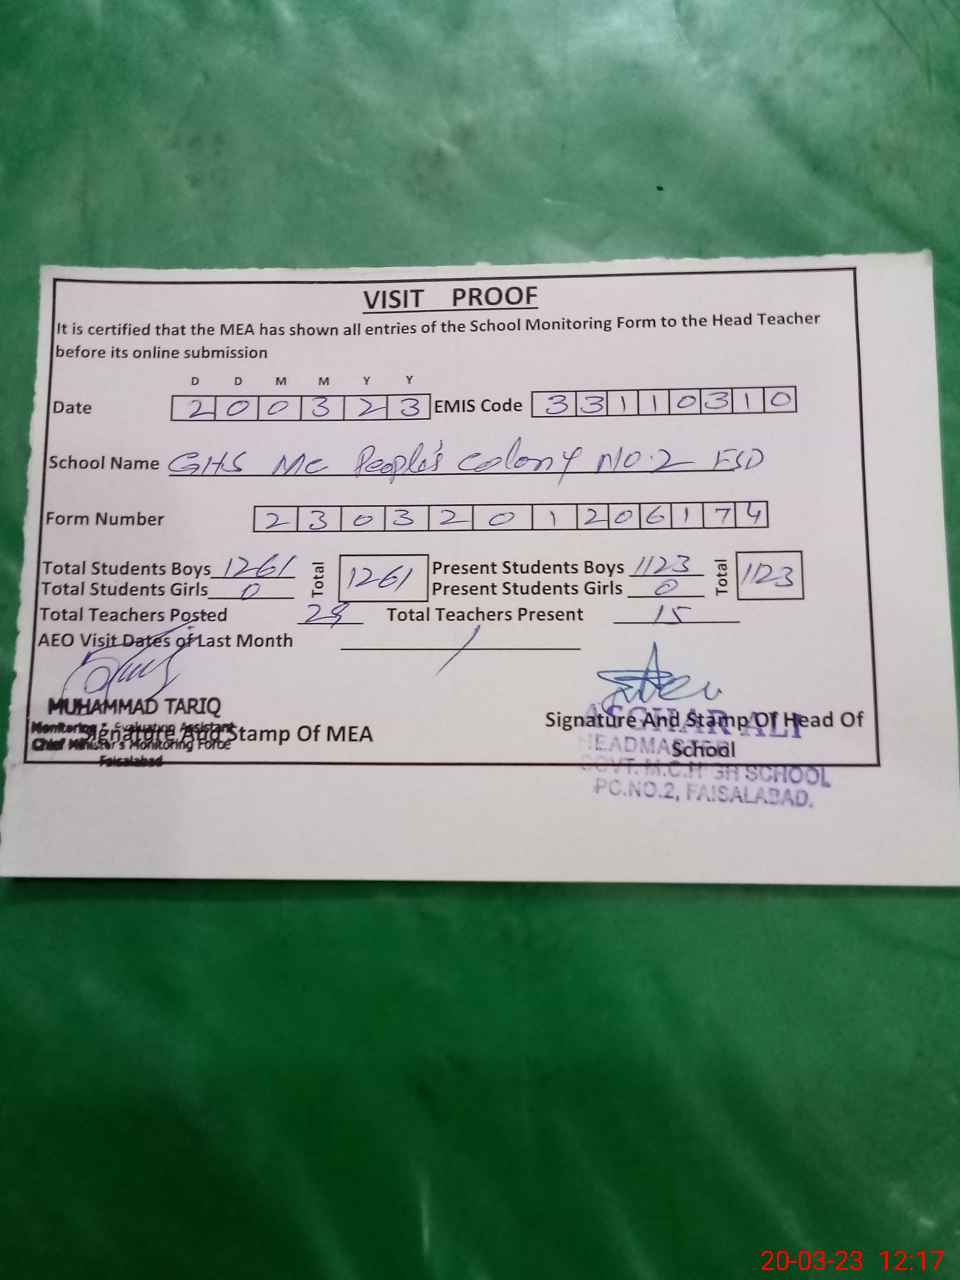 VISIT PROOF
It is certified that the MEA has shown all entries of the School Monitoring Form to the Head Teacher
before its online submission
D D M M Y Y
Date 2 0 0 3 2 3 EMIS Code 3 3 1 1 0 3 1 0
School Name GHS MC People's Colony NO.2 FSD
Form Number 2 3 0 3 2 0 1 2 0 6 1 7 4
Total Students Boys 1261 Total 1261 Present Students Boys 1123 Total 1123
Total Students Girls 0 Present Students Girls 0
Total Teachers Posted Total Teachers Present 15
AEO Visit Dates of Last Month /
MUHAMMAD TARIQ
Monitoring & Evaluation Assistant
Signature And Stamp Of MEA
Chief Minister's Monitoring Force
Faisalabad
Signature And Stamp Of Head Of
School
ASGHAR ALI
HEADMASTER
GOVT. M.C. HIGH SCHOOL
PC.NO.2, FAISALABAD.
20-03-23 12:17